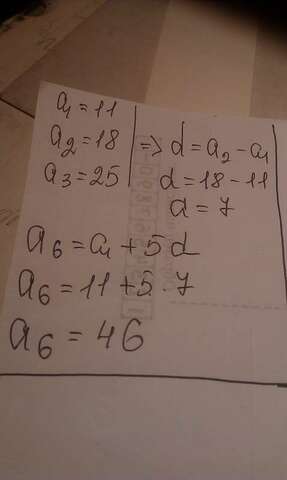 a₁ = 11
a₂ = 18
a₃ = 25
=> d = a₂ - a₁
d = 18 - 11
d = 7
a₆ = a₁ + 5d
a₆ = 11 + 5 · 7
a₆ = 46